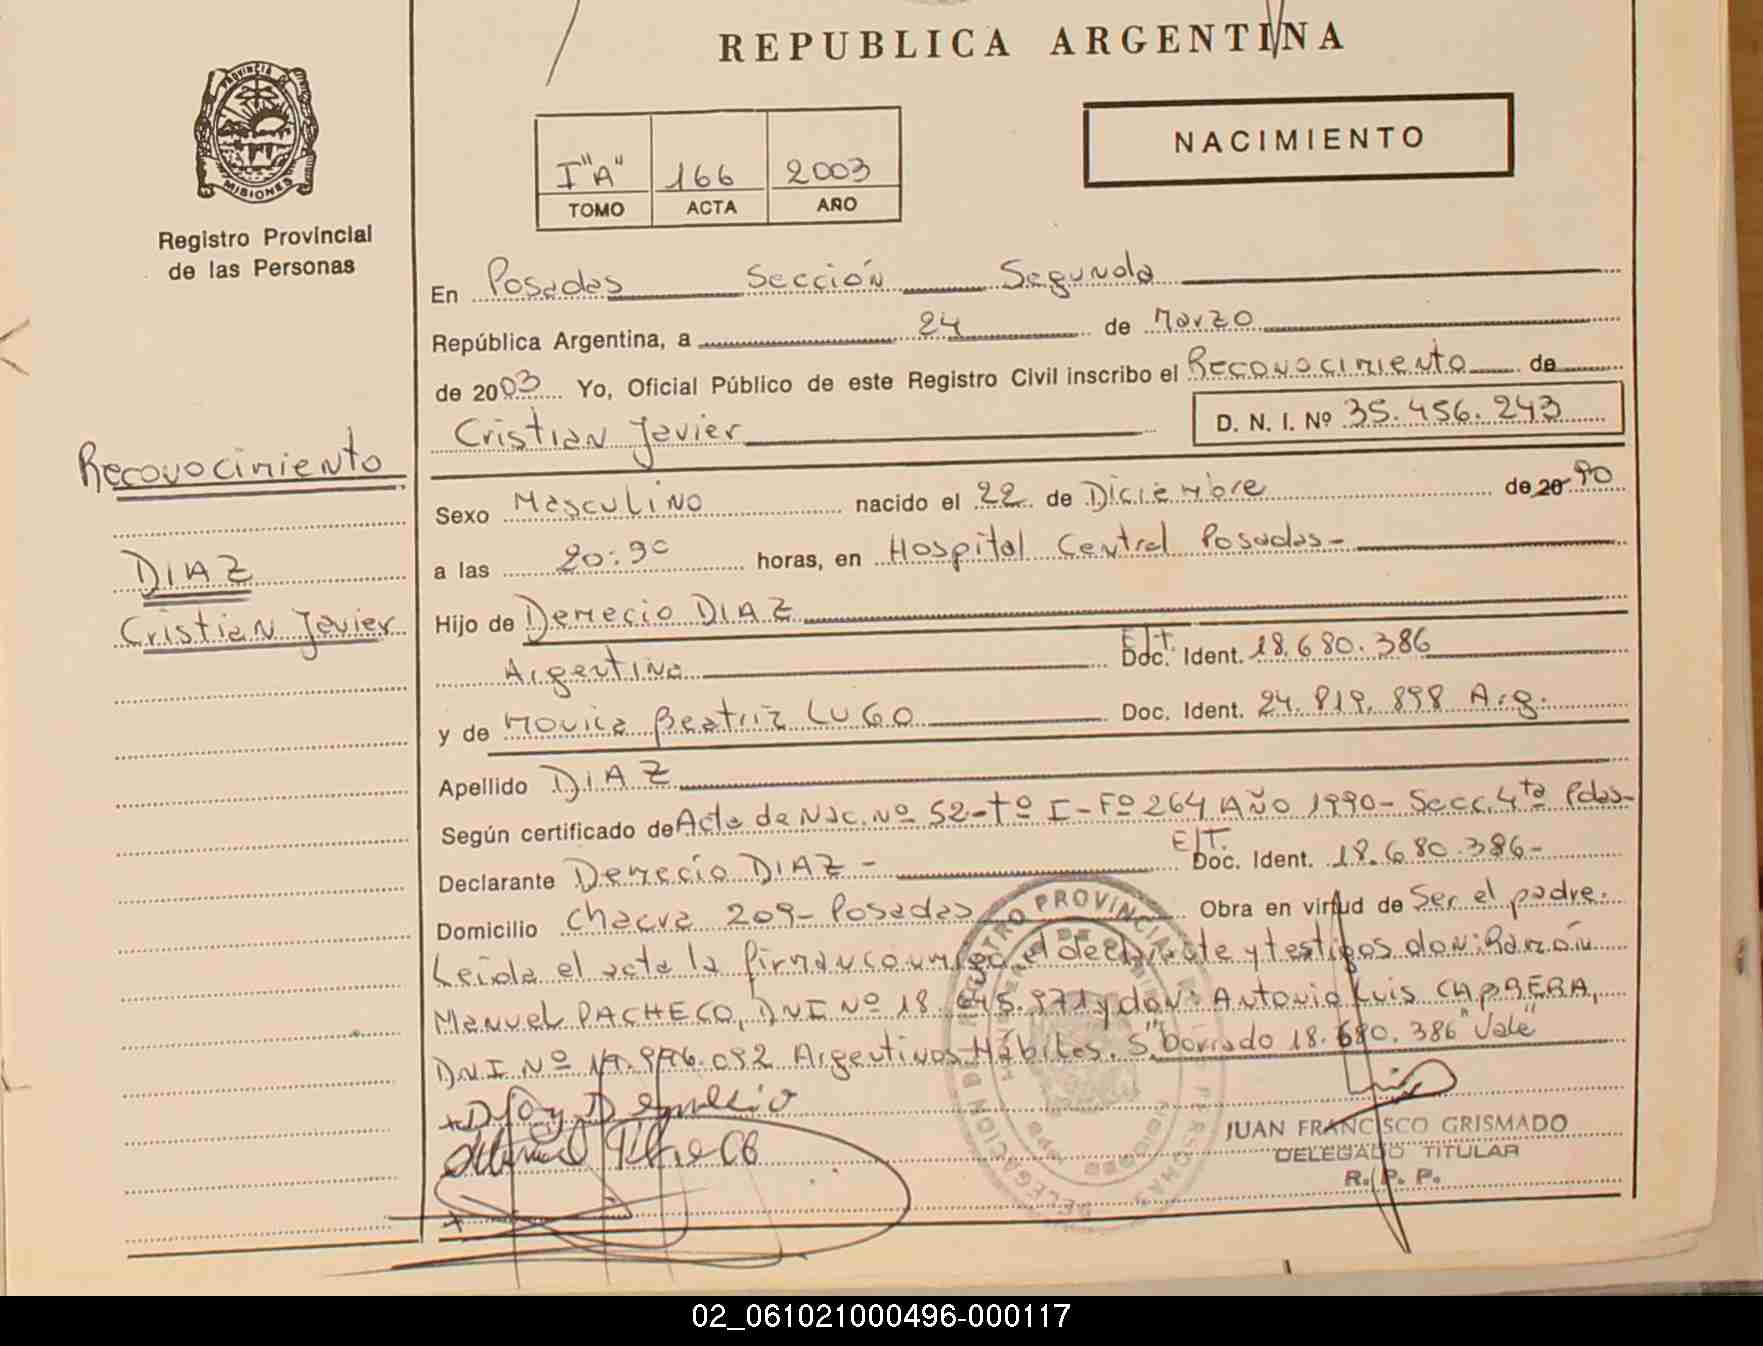 REPUBLICA ARGENTINA
PROVINCIA DE
MISIONES
Registro Provincial
de las Personas
NACIMIENTO
I "A" 166 2003
TOMO ACTA AÑO
En Posadas Sección Segunda
República Argentina, a 24 de Marzo
de 2003 Yo, Oficial Público de este Registro Civil inscribo el Reconocimiento de
Cristian Javier D. N. I. Nº 35.456.243
Reconocimiento
DIAZ
Cristian Javier
Sexo Masculino nacido el 22 de Diciembre de 20 90
a las 20:30 horas, en Hospital Central Posadas-
Hijo de Demecio DIAZ
Argentino E/T. Doc. Ident. 18.680.386
y de Monica Beatriz LUGO Doc. Ident. 24.819.898 Arg.
Apellido DIAZ
Según certificado de Acta de Nac. Nº 52-tº I-Fº 264 Año 1990- Secc. 4ta Pdas-
Declarante Demecio DIAZ- E/T. Doc. Ident. 18.680.386-
Domicilio Chacra 209- Posadas Obra en virtud de Ser el padre.
Leida el acta la firman conmigo el declarante y testigos don: Ramón
Manuel PACHECO, DNI Nº 18. 971 y don: Antonio Luis CABRERA,
DNI Nº Argentinos Hábiles. S"borrado 18.680.386" Vale"
JUAN FRANCISCO GRISMADO
DELEGADO TITULAR
R. P. P.
02_061021000496-000117